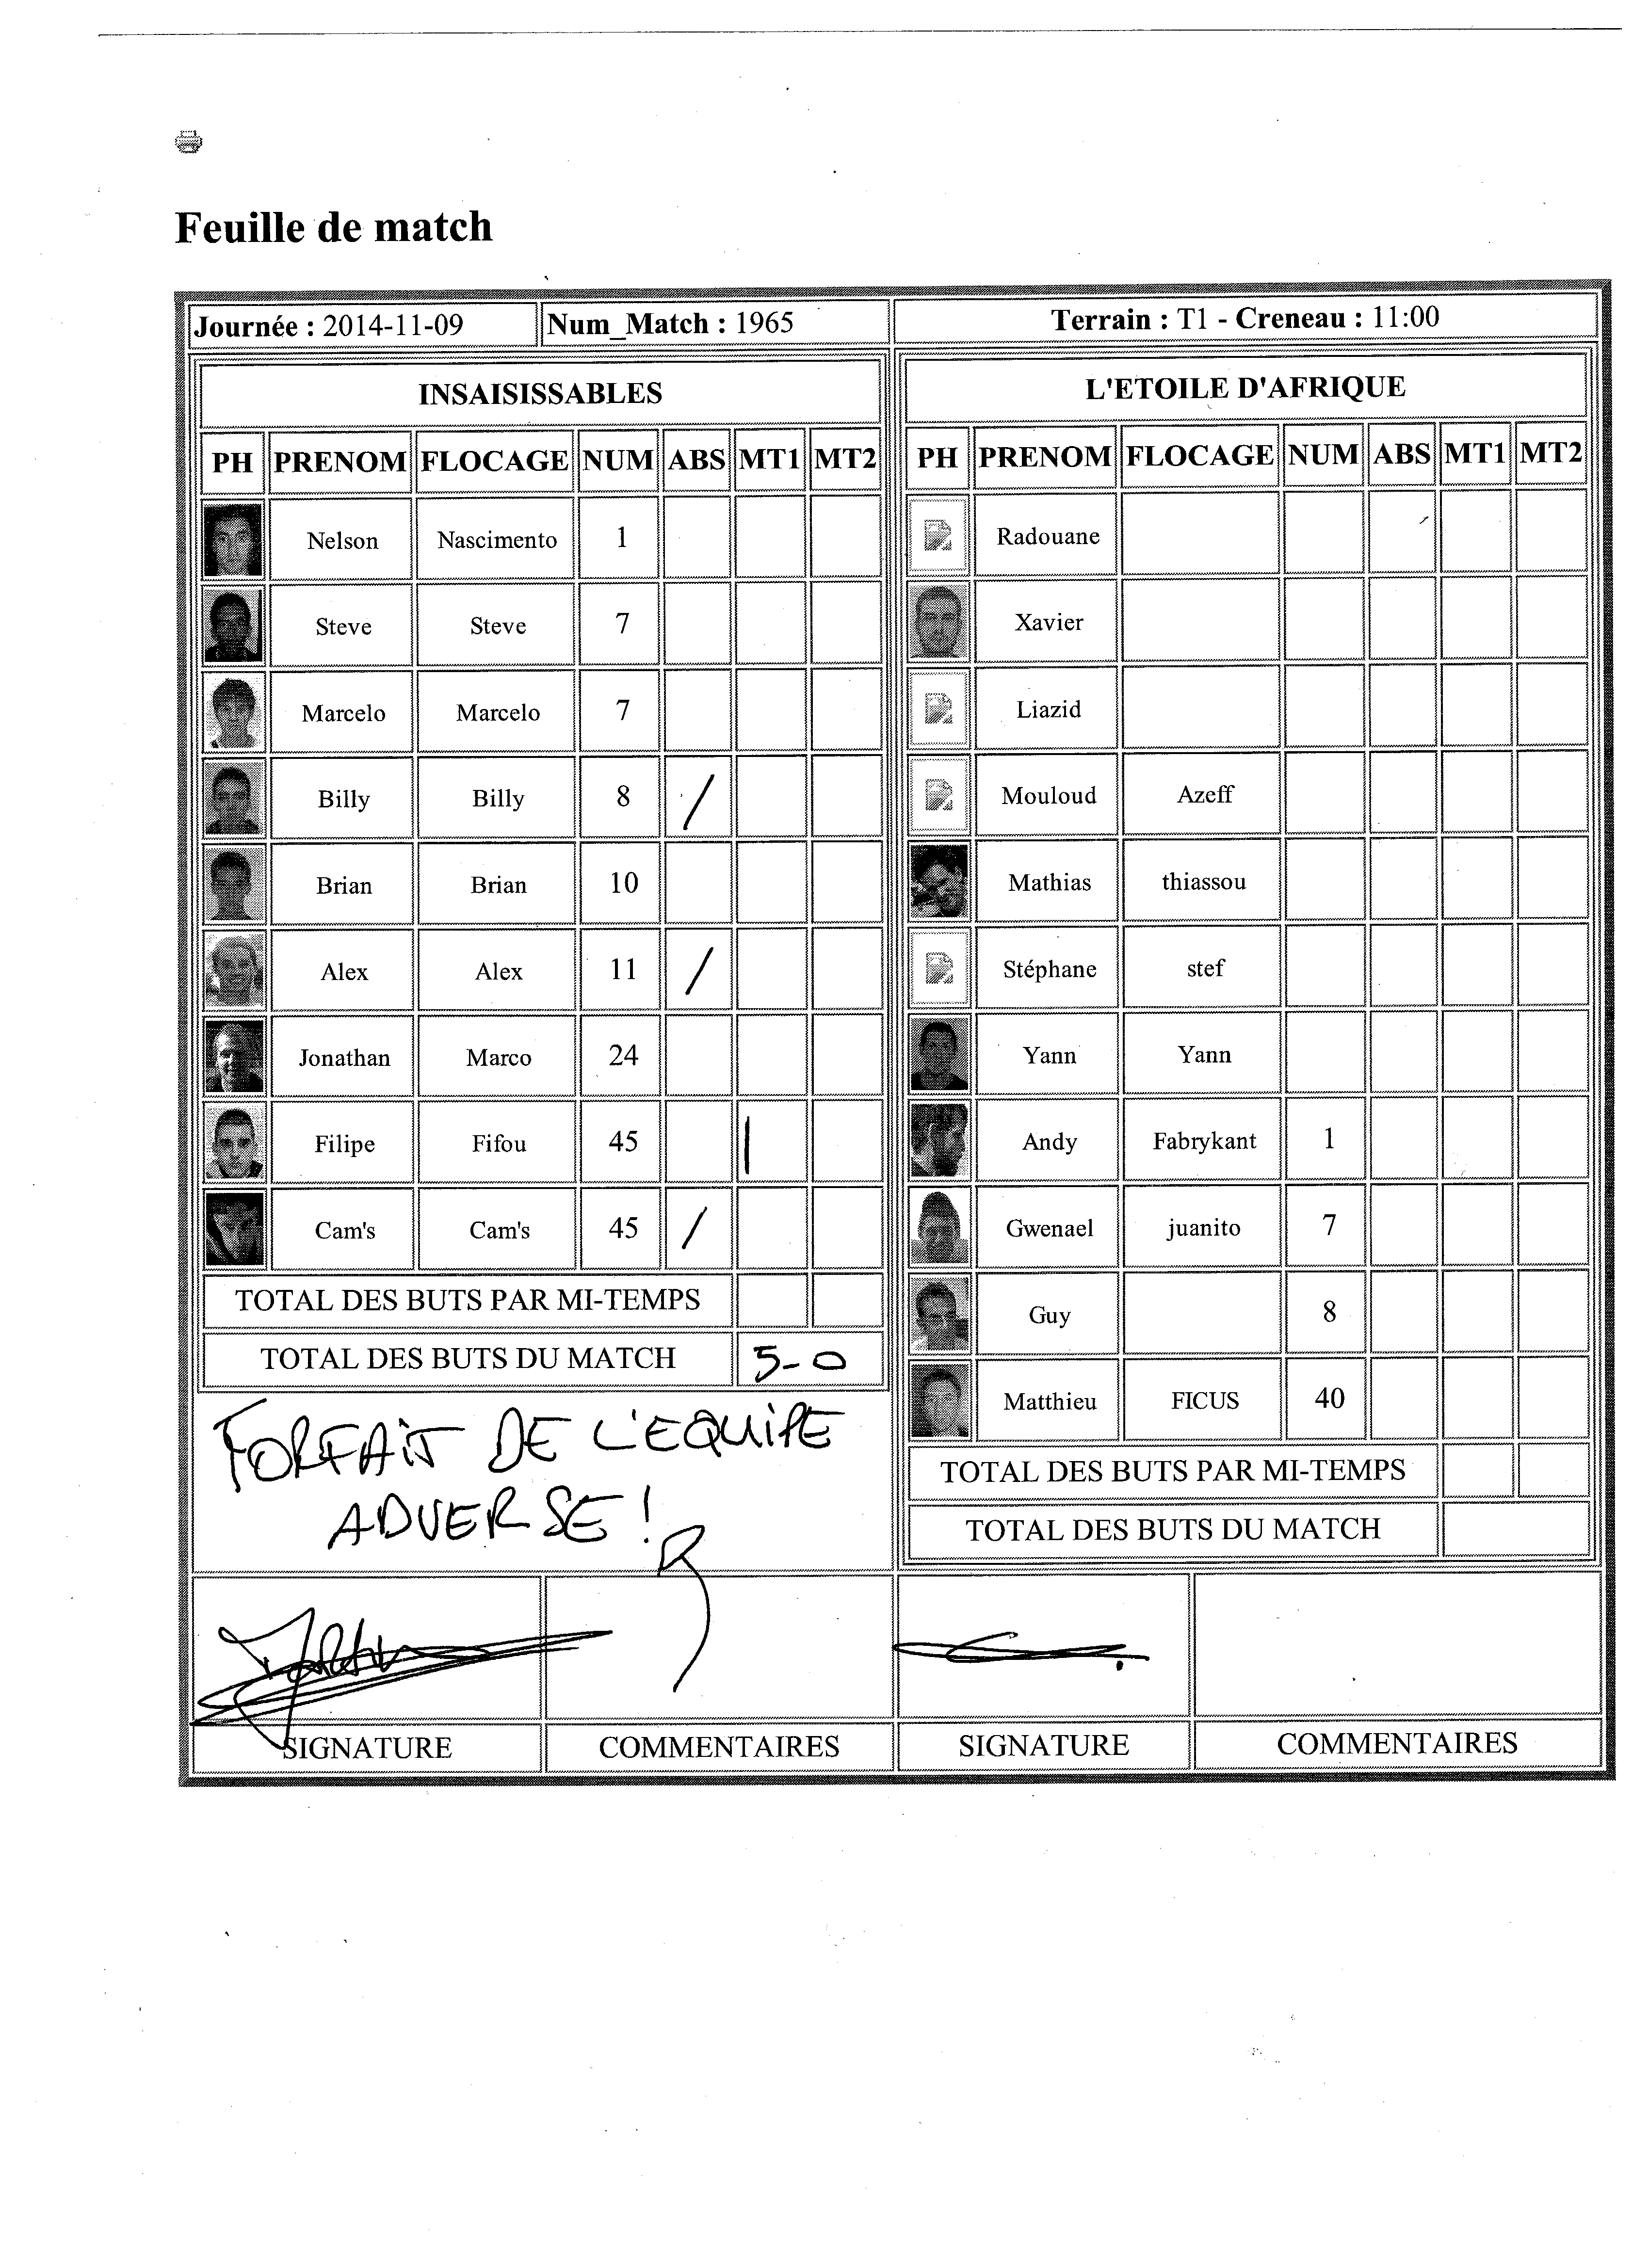 Feuille de match
Journée : 2014-11-09 Num_Match : 1965 Terrain : T1 - Creneau : 11:00
INSAISISSABLES
PH PRENOM FLOCAGE NUM ABS MT1 MT2
Nelson Nascimento 1
Steve Steve 7
Marcelo Marcelo 7
Billy Billy 8 /
Brian Brian 10
Alex Alex 11 /
Jonathan Marco 24
Filipe Fifou 45 |
Cam's Cam's 45 /
TOTAL DES BUTS PAR MI-TEMPS
TOTAL DES BUTS DU MATCH 5-0
FORFAIT DE L'EQUIPE
ADVERSE !
SIGNATURE COMMENTAIRES
L'ETOILE D'AFRIQUE
PH PRENOM FLOCAGE NUM ABS MT1 MT2
Radouane
Xavier
Liazid
Mouloud Azeff
Mathias thiassou
Stéphane stef
Yann Yann
Andy Fabrykant 1
Gwenael juanito 7
Guy 8
Matthieu FICUS 40
TOTAL DES BUTS PAR MI-TEMPS
TOTAL DES BUTS DU MATCH
SIGNATURE COMMENTAIRES